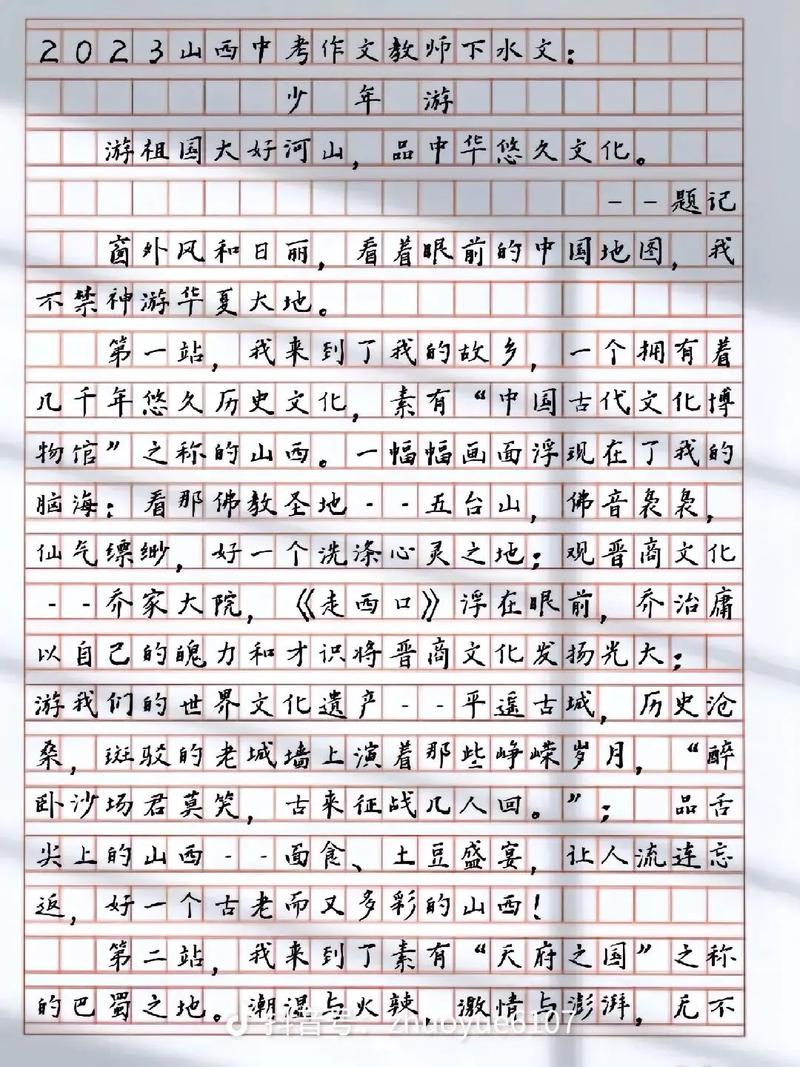 2023山西中考作文教师下水文：
少年游
游祖国大好河山，品中华悠久文化。
--题记
窗外风和日丽，看着眼前的中国地图，我
不禁神游华夏大地。
第一站，我来到了我的故乡，一个拥有着
几千年悠久历史文化，素有“中国古代文化博
物馆”之称的山西。一幅幅画面浮现在了我的
脑海：看那佛教圣地--五台山，佛音袅袅，
仙气缥缈，好一个洗涤心灵之地；观晋商文化
--乔家大院，《走西口》浮在眼前，乔治庸
以自己的魄力和才识将晋商文化发扬光大；
游我们的世界文化遗产--平遥古城，历史沧
桑，斑驳的老城墙上演着那些峥嵘岁月，“醉
卧沙场君莫笑，古来征战几人回。”；品舌
尖上的山西--面食、土豆盛宴，让人流连忘
返，好一个古老而又多彩的山西！
第二站，我来到了素有“天府之国”之称
的巴蜀之地。潮湿与火辣，激情与澎湃，无不
抖音号：zhuoyue6107